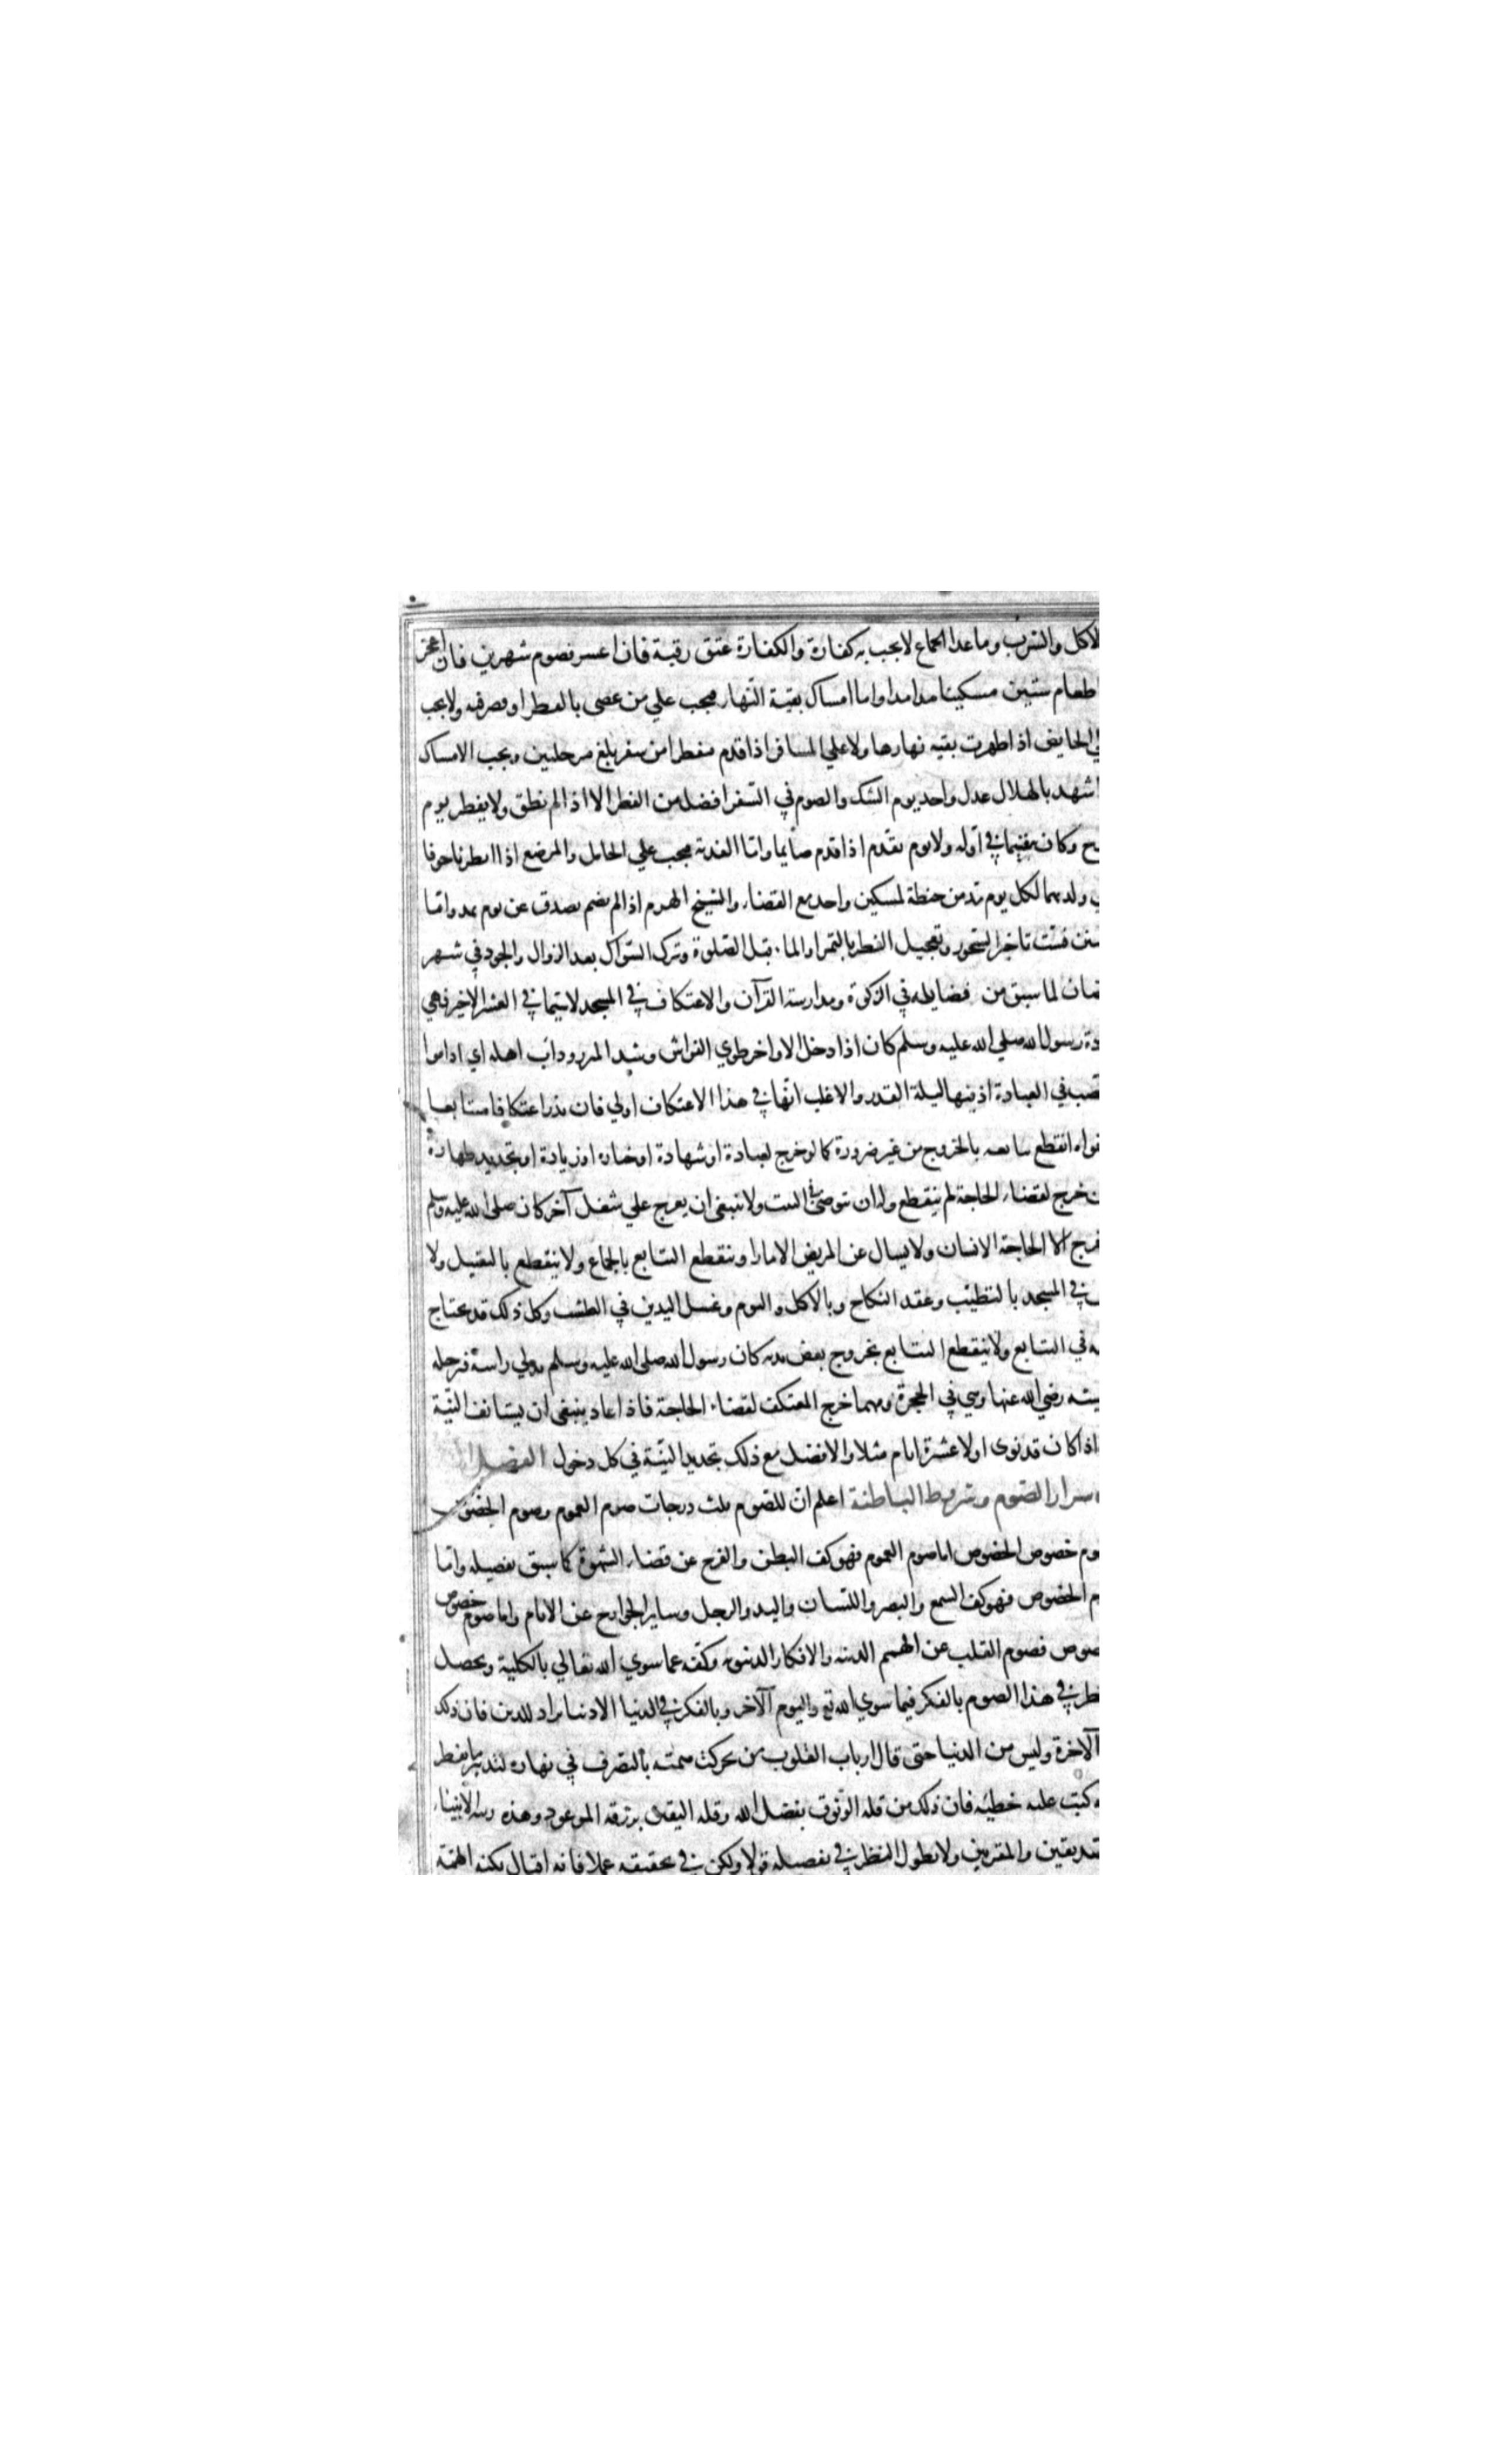 لاكل والشرب وما عدا الجماع لا يجب به كفارة والكفارة عتق رقبة فان اعسر فصوم شهرين فان عجز
اطعام ستين مسكينا مدا مدا واما امساك بقية النهار فيجب علي من عصى بالفطر او قصر فيه ولا يجب
الحايض اذا طهرت بقيه نهارها ولا علي المسافر اذا قدم مفطرا من سفر بلغ مرحلتين ويجب الامساك
ا شهد بالهلال عدل واحد يوم الشك والصوم في السفر افضل من الفطر الا اذا لم يطق ولا يفطر يوم
ح وكان مقيما في اوله ولا يوم يقدم اذا قدم صايما واما الفدية فيجب علي الحامل والمرضع اذا افطرتا خوفا
ولديهما لكل يوم مد من حنطة لمسكين واحد مع القضاء والشيخ الهرم اذا لم يصم تصدق عن يوم بمد واما
سنن فست تاخير السحور وتعجيل الفطر بالتمر او الماء قبل الصلوة وترك السواك بعد الزوال والجود في شهر
ضان لما سبق من فضايله في الزكوة ومدارسة القرآن والاعتكاف في المسجد لا سيما في العشر الاخير فهي
دة رسول الله صلي الله عليه وسلم كان اذا دخل الاواخر طوي الفراش وشد المزر وداب اهله اي اداموا
صب في العبادة اذ فيها ليلة القدر والاغلب انها في هذا الاعتكاف اولي فان نذر اعتكافا متتابعا
نواه انقطع تتابعه بالخروج من غير ضرورة كما لو خرج لعيادة او شهادة او جنازه او زيادة او تجديد طهارة
ن خرج لقضاء الحاجة لم ينقطع وله ان يتوضى في البيت ولا ينبغي ان يعرج علي شغل آخر كان صلى الله عليه وسلم
خرج الا لحاجة الانسان ولا يسال عن المريض الا مارا وينقطع التتابع بالجماع ولا ينقطع بالتقبيل ولا
في المسجد بالتطيب وعقد النكاح وبالاكل والنوم وغسل اليدين في الطشت وكل ذلك قد يحتاج
ه في التتابع ولا ينقطع التتابع بخروج بعض بدنه كان رسول الله صلى الله عليه وسلم يدلي راسه فترجله
يشه رضي الله عنها وهي في الحجرة ومهما خرج المعتكف لقضاء الحاجة فاذا عاد ينبغي ان يستانف النية
اذا كان قد نوى اولا عشرة ايام مثلا والافضل مع ذلك تجديد النية في كل دخول الفصل
سرار الصوم وشروط الباطنة اعلم ان للصوم ثلث درجات صوم العموم وصوم الخصوص
وم خصوص الخصوص اما صوم العموم فهو كف البطن والفرج عن قضاء الشهوة كما سبق تفصيله واما
م الخصوص فهو كف السمع والبصر واللسان واليد والرجل وساير الجوارح عن الاثام واما صوم خصوص
صوص فصوم القلب عن الهمم الدنيه والافكار الدنيويه وكفه عما سوي الله تعالي بالكلية ويحصل
طر في هذا الصوم بالفكر فيما سوي الله تع واليوم الآخر وبالفكر في الدنيا الا دنيا يراد للدين فان ذلك
الآخرة وليس من الدنيا حتى قال ارباب القلوب من تحركت همته بالتصرف في نهاره لتدبير ما يفطر
ه كتبت عليه خطيئه فان ذلك من قله الوثوق بفضل الله وقله اليقين برزقه الموعود وهذه رتبه الانبياء
صديقين والمقربين ولا يطول النظر في تفصيله قولا ولكن في تحقيقه عملا فانه اقبال بكنه الهمة